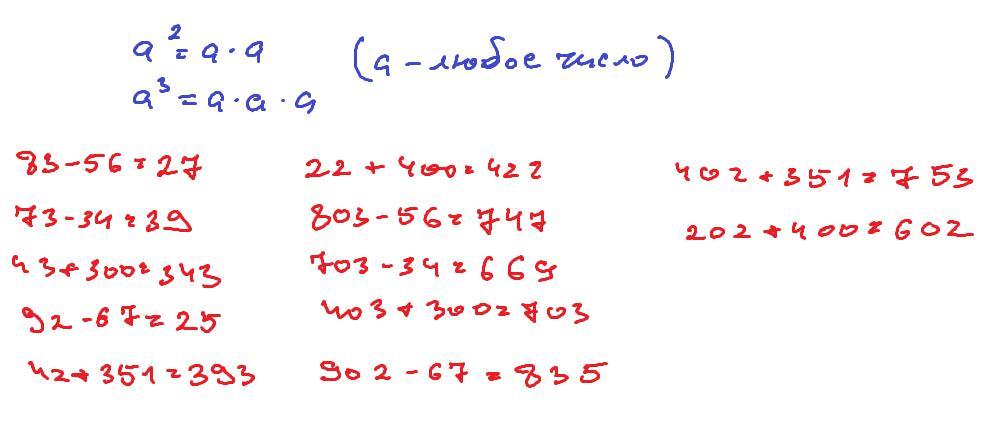 a² = a · a (a - любое число)
a³ = a · a · a
83 - 56 = 27 22 + 400 = 422 402 + 351 = 753
73 - 34 = 39 803 - 56 = 747 202 + 400 = 602
43 + 300 = 343 703 - 34 = 669
92 - 67 = 25 403 + 300 = 703
42 + 351 = 393 902 - 67 = 835